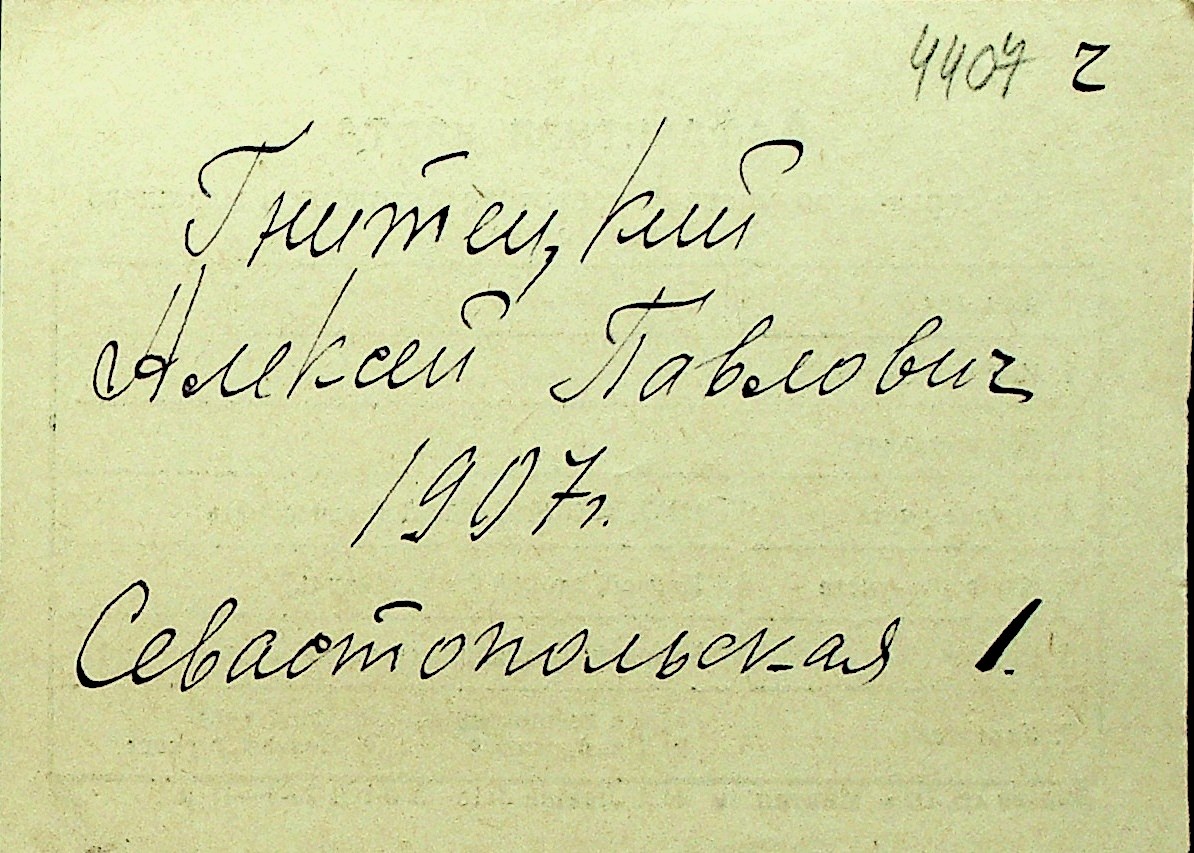 4407 ч
Гнитецкий
Алексей Павлович
1907г.
Севастопольская 1.